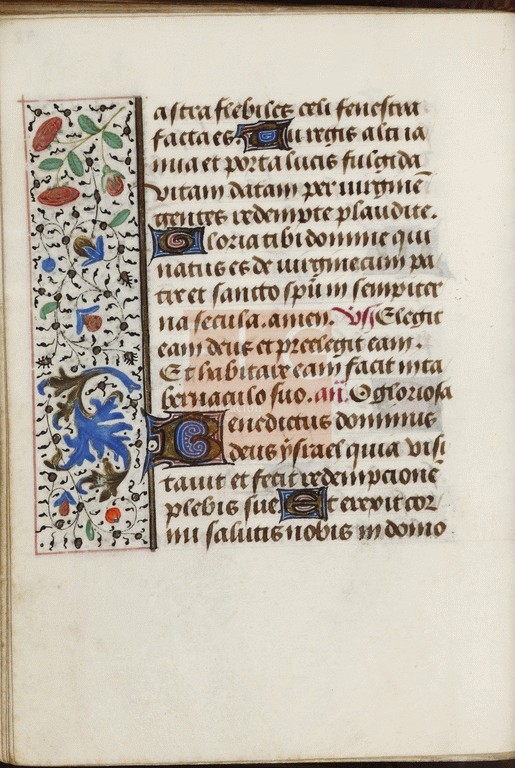 astra flebiles celi fenestra
facta es. Tu regis alti ia
nua et porta lucis fulgida
vitam datam per virginẽ
gentes redempte plaudite.
Gloria tibi domine qui
natus es de virgine cum pa
tre et sancto spũ in sempiter
na secula. amen. V̸ss Elegit
eam deus et preelegit eam.
Et habitare eam facit in ta
bernaculo suo. añ. O gloriosa
Benedictus dominus
deus ysrael quia visi
tavit et fecit redempcionẽ
plebis sue Et erexit cor
nu salutis nobis in domo